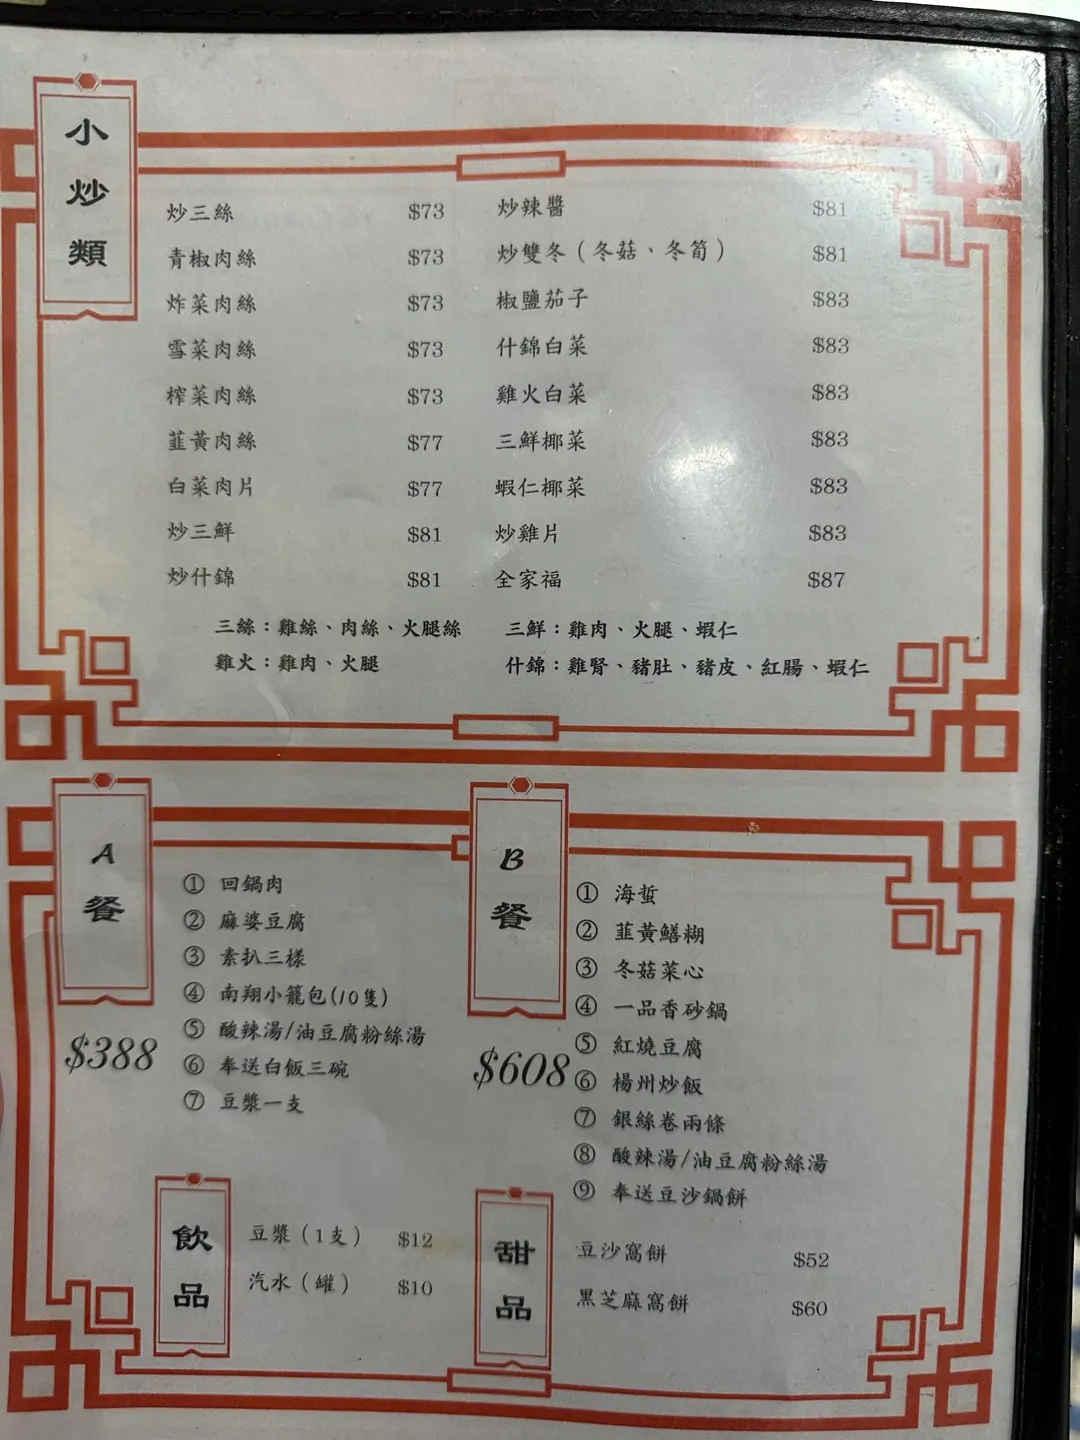 小炒類
炒三絲 $73
青椒肉絲 $73
炸菜肉絲 $73
雪菜肉絲 $73
榨菜肉絲 $73
韮黃肉絲 $77
白菜肉片 $77
炒三鮮 $81
炒什錦 $81
炒辣醬 $81
炒雙冬（冬菇、冬筍） $81
椒鹽茄子 $83
什錦白菜 $83
雞火白菜 $83
三鮮椰菜 $83
蝦仁椰菜 $83
炒雞片 $83
全家福 $87
三絲：雞絲、肉絲、火腿絲
三鮮：雞肉、火腿、蝦仁
雞火：雞肉、火腿
什錦：雞腎、豬肚、豬皮、紅腸、蝦仁
A餐
$388
① 回鍋肉
② 麻婆豆腐
③ 素扒三樣
④ 南翔小籠包(10隻)
⑤ 酸辣湯/油豆腐粉絲湯
⑥ 奉送白飯三碗
⑦ 豆漿一支
B餐
$608
① 海蜇
② 韮黃鱔糊
③ 冬菇菜心
④ 一品香砂鍋
⑤ 紅燒豆腐
⑥ 楊州炒飯
⑦ 銀絲卷兩條
⑧ 酸辣湯/油豆腐粉絲湯
⑨ 奉送豆沙鍋餅
飲品
豆漿（1支） $12
汽水（罐） $10
甜品
豆沙窩餅 $52
黑芝麻窩餅 $60